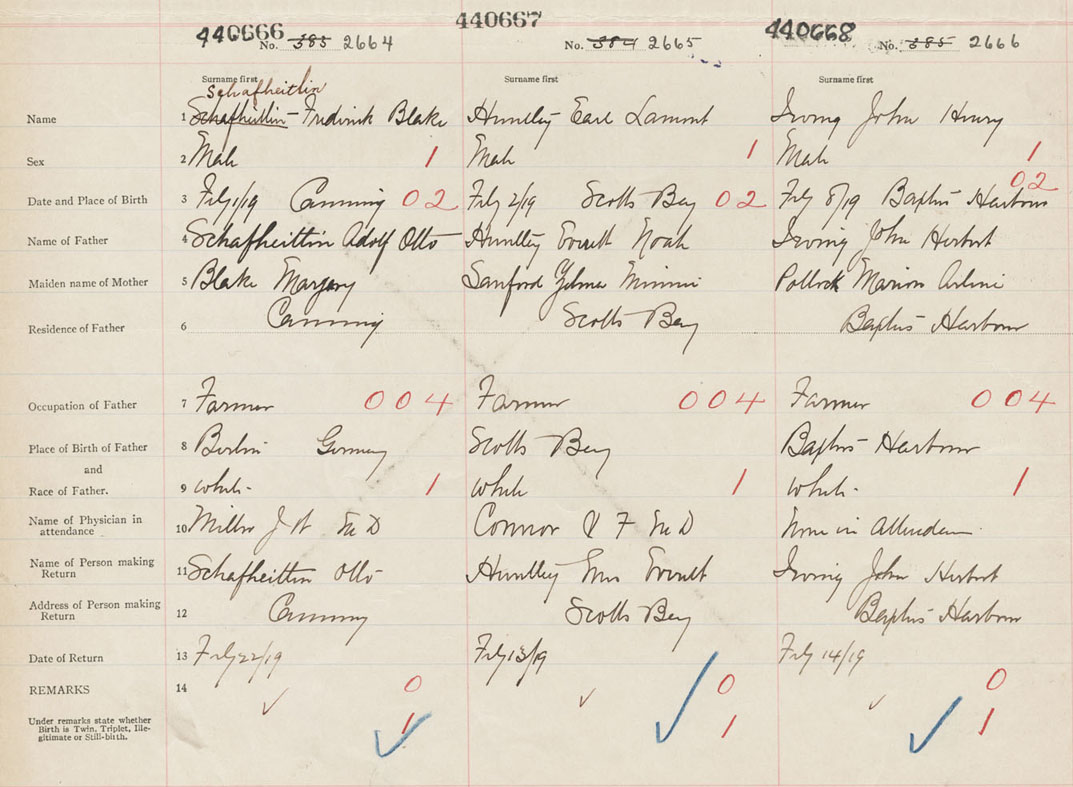 440666 440667 440668
No. 385 2664 No. 384 2665 No. 385 2666
Surname first Surname first Surname first
Schafheitlin
Name 1 Schafheitlin Fredrick Blake Huntley Earl Lamont Irving John Henry
Sex 2 Male 1 Male 1 Male 1
Date and Place of Birth 3 Feby 1/19 Canning 02 Feby 2/19 Scotts Bay 02 Feby 8/19 Baxters Harbour 02
Name of Father 4 Schafheittin Adolf Otto Huntley Everett Noah Irving John Herbert
Maiden name of Mother 5 Blake Margery Sanford Minnie Pollock Marion
Residence of Father 6 Canning Scotts Bay Baxters Harbour
Occupation of Father 7 Farmer 004 Farmer 004 Farmer 004
Place of Birth of Father 8 Berlin Germany Scotts Bay Baxters Harbour
and
Race of Father. 9 White 1 White 1 White 1
Name of Physician in
attendance 10 Miller J W M D Connor F M D None in Attendance
Name of Person making
Return 11 Schafheittin Otto Huntley Mrs Everett Irving John Herbert
Address of Person making
Return 12 Canning Scotts Bay Baxters Harbour
Date of Return 13 Feby 22/19 Feby 13/19 Feby 14/19
REMARKS 14 0 0 0
Under remarks state whether
Birth is Twin, Triplet, Ille-
gitimate or Still-birth. 1 1 1